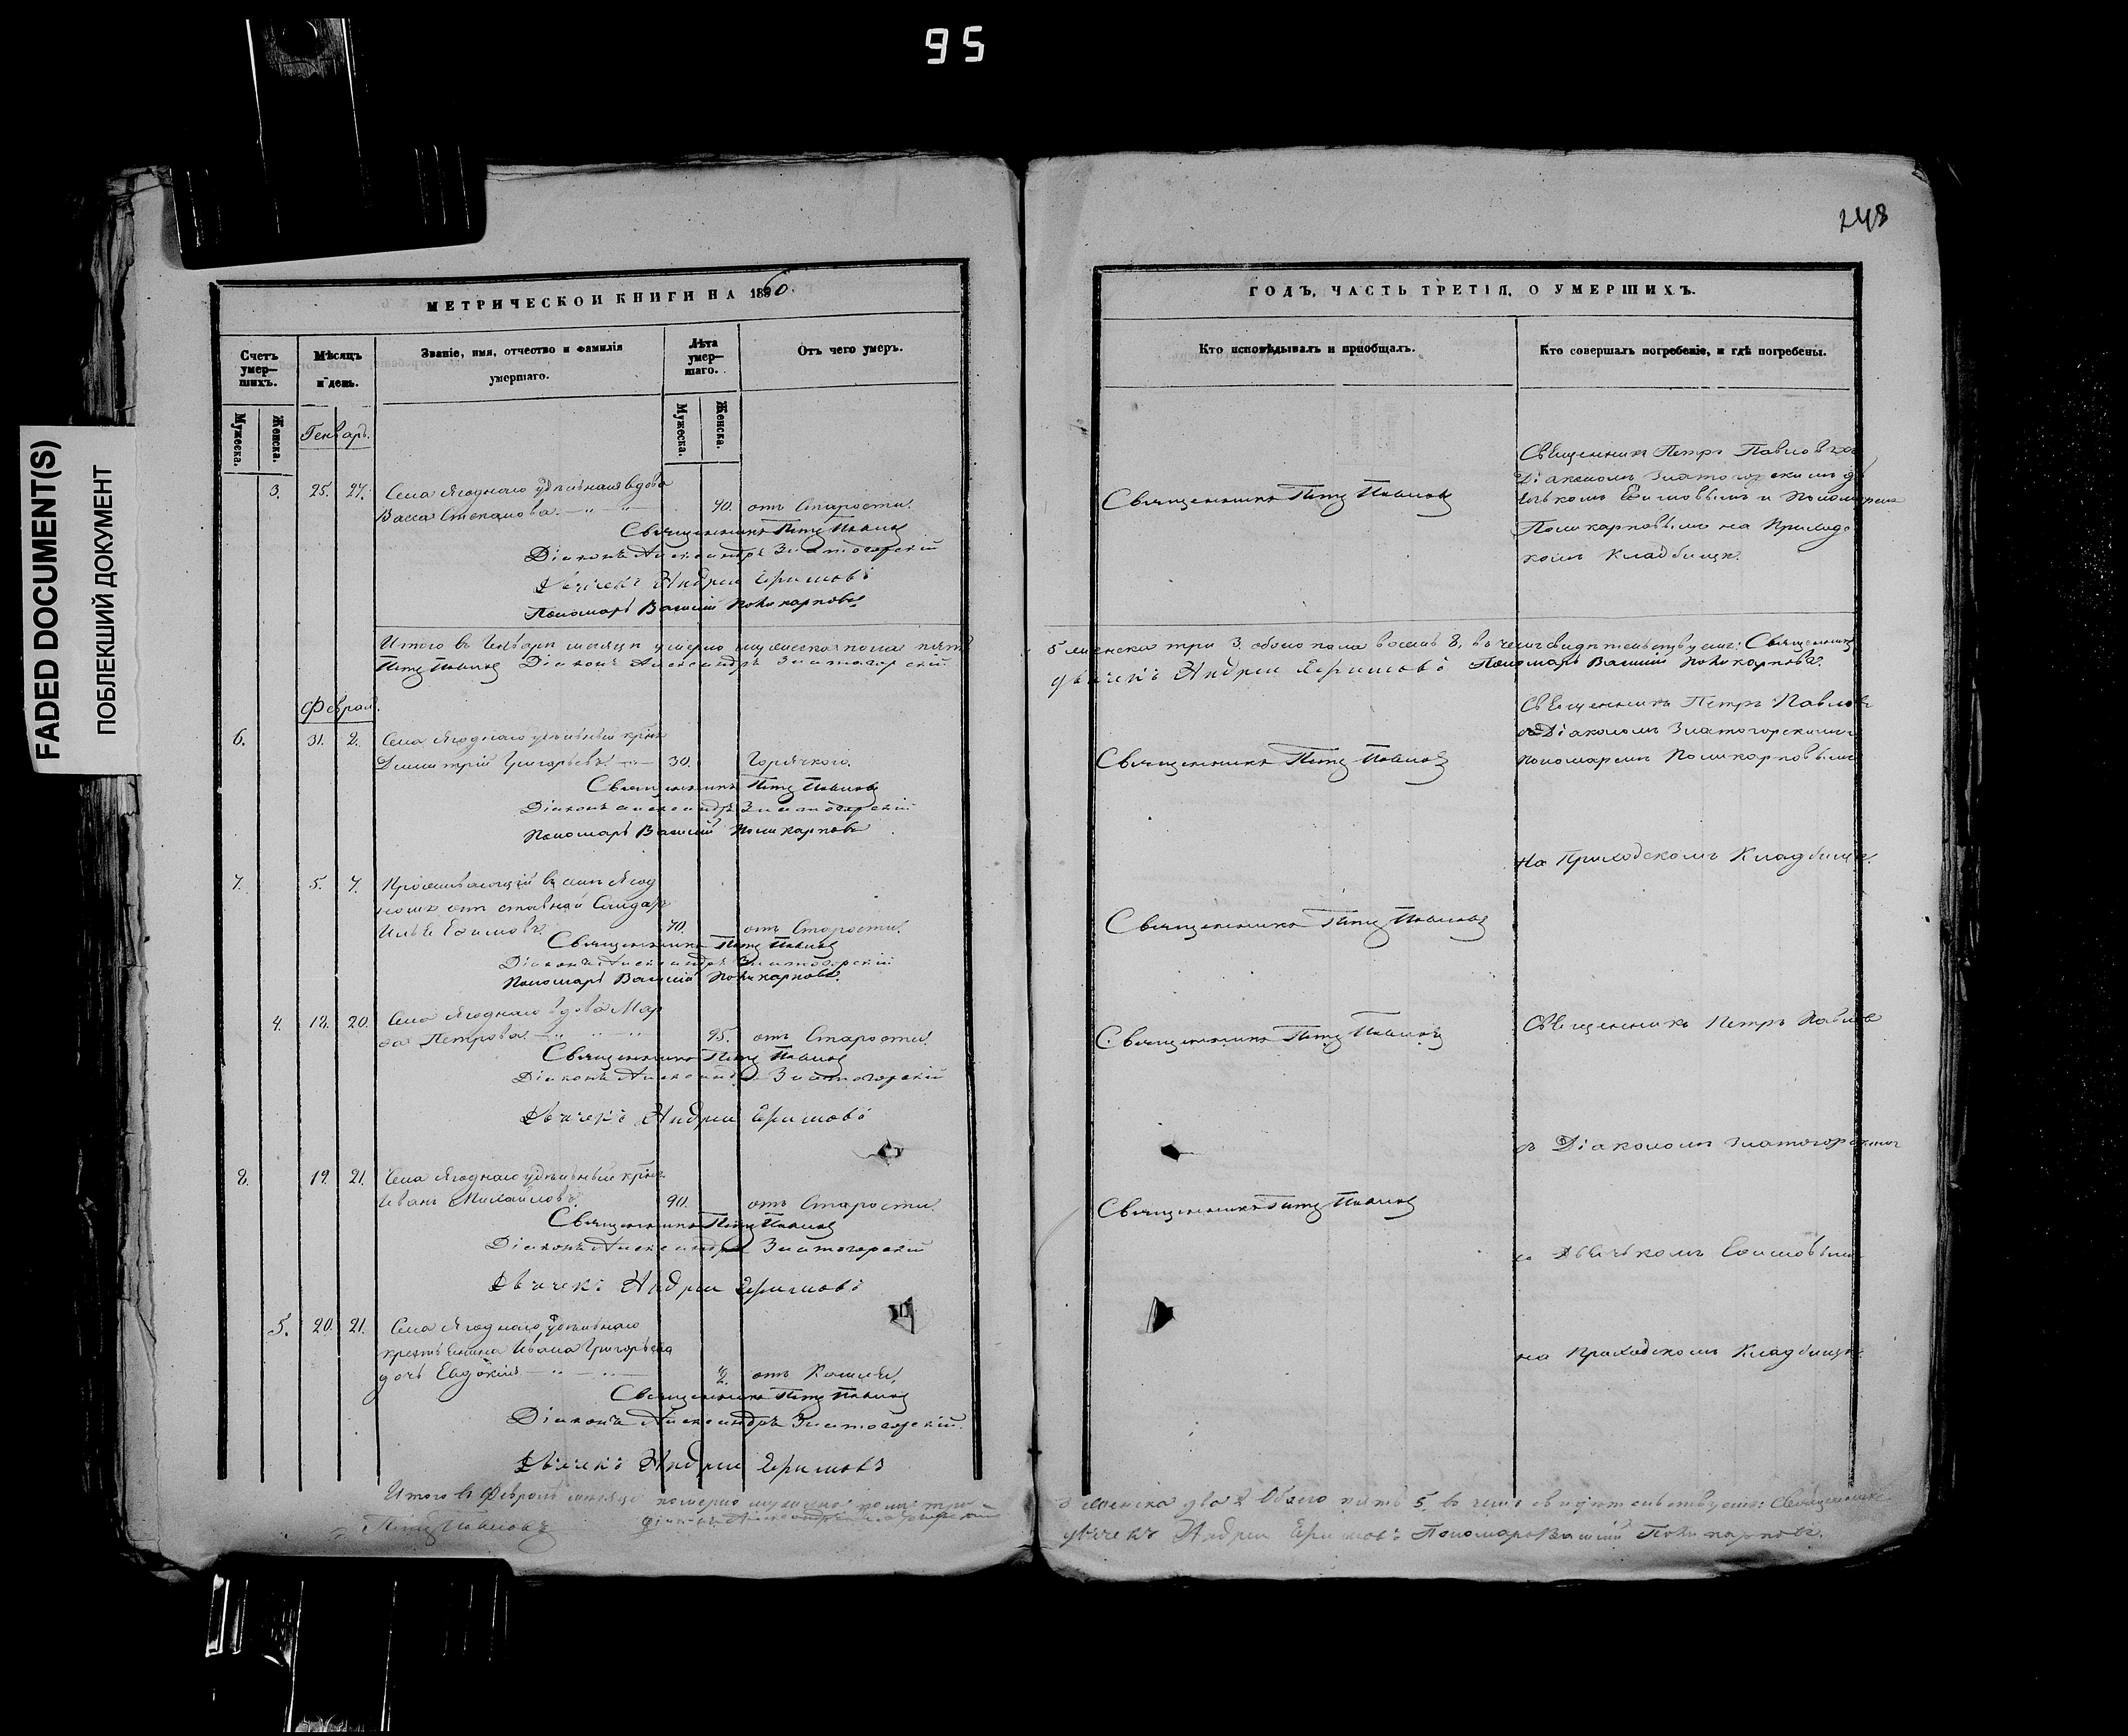 95
248
FADED DOCUMENT(S)
ПОБЛЕКШИЙ ДОКУМЕНТ
МЕТРИЧЕСКОЙ КНИГИ НА 1860.
Счетъ умер-шихъ.
Мѣсяцъ и день.
Званіе, имя, отчество и фамилія умершаго.
Лѣта умер-шаго.
Отъ чего умеръ.
Мужеска.
Женска.
Мужеска.
Женска.
Генварь.
3. 25. 27. Села Ягоднаго удѣльная вдова
Васса Степанова 70. отъ Старости.
Священникъ Петръ Павловъ
Діаконъ Александръ Златогорскій
Дьячекъ Андрей Ефимовъ
Пономарь Василій Поликарповъ
Итого въ Генварѣ мѣсяцѣ умерло мужеска пола пять
Петръ Павловъ Діаконъ Александръ Златогорскій
Феврал.
6. 31. 2. Села Ягоднаго удѣльный крѣн
Димитрій Григорьевъ 30. Горячкого.
Священникъ Петръ Павловъ
Діаконъ Александръ Златогорскій
Пономарь Василій Поликарповъ
7. 5. 7. Проживающій въ селѣ Ягод
номъ отставной Солдат
Илья Ефимовъ 70. отъ Старости.
Священникъ Петръ Павловъ
Діаконъ Александръ Златогорскій
Пономарь Василій Поликарповъ.
4. 18. 20. Села Ягоднаго вдова Мар
Петрова 95. отъ Старости.
Священникъ Петръ Павловъ
Діаконъ Александръ Златогорскій
Дьячекъ Андрей Ефимовъ
8. 19. 21. Села Ягоднаго удѣльный
Иванъ Михайловъ 90. отъ Старости.
Священникъ Петръ Павловъ
Діаконъ Александръ Златогорскій
Дьячекъ Андрей Ефимовъ
5. 20. 21. Села Ягоднаго удѣльнаго
крестьянина Ивана Григорьева
дочь Евдокія 2. отъ Кашля.
Священникъ Петръ Павловъ
Діаконъ Александръ Златогорскій.
Дьячекъ Андрей Ефимовъ
Итого въ Февралѣ мѣсяцѣ померло мужеска пола три
Петръ Павловъ Діаконъ Александръ
ГОДЪ, ЧАСТЬ ТРЕТІЯ, О УМЕРШИХЪ.
Кто исповѣдывалъ и пріобщалъ.
Кто совершалъ погребеніе, и гдѣ погребены.
Священникъ Петръ Павловъ
Діакономъ Златогорскимъ дь
ячькомъ Ефимовымъ и Пономаремъ
Священникъ Петръ Павловъ
Поликарповымъ на Приходс
комъ Кладбищѣ.
5 женска три 3. обоего пола восемь 8, въ чемъ свидѣтельствуемъ: Священникъ
дьячекъ Андрей Ефимовъ Пономарь Василій Поликарповъ.
Священникъ Петръ Павловъ
съ Діакономъ Златогорскимъ
Священникъ Петръ Павловъ
пономаремъ Поликарповымъ
на Приходскомъ Кладбищѣ.
Священникъ Петръ Павловъ
Священникъ Петръ Павловъ
Священникъ Петръ Павловъ
съ Діакономъ Златогорскимъ
Священникъ Петръ Павловъ
Дьячькомъ Ефимовымъ
на Приходскомъ Кладбищѣ.
3 женска два 2 Обоего пять 5, въ чемъ свидѣтельствуемъ: Священникъ
дьячекъ Андрей Ефимовъ Пономарь Василій Поликарповъ.